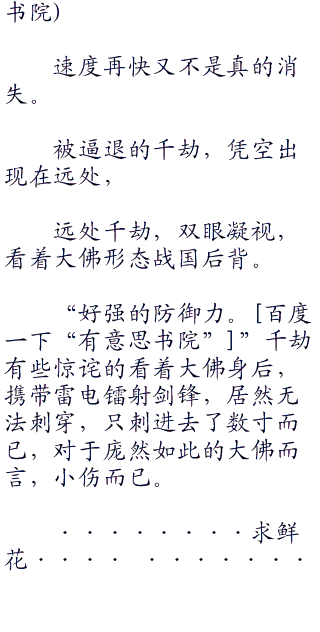 书院）
速度再快又不是真的消
失。
被逼退的千劫，凭空出
现在远处，
远处千劫，双眼凝视，
看着大佛形态战国后背。
“好强的防御力。[百度
一下“有意思书院”]”千劫
有些惊诧的看着大佛身后，
携带雷电镭射剑锋，居然无
法刺穿，只刺进去了数寸而
已，对于庞然如此的大佛而
言，小伤而已。
········求鲜
花···· ········